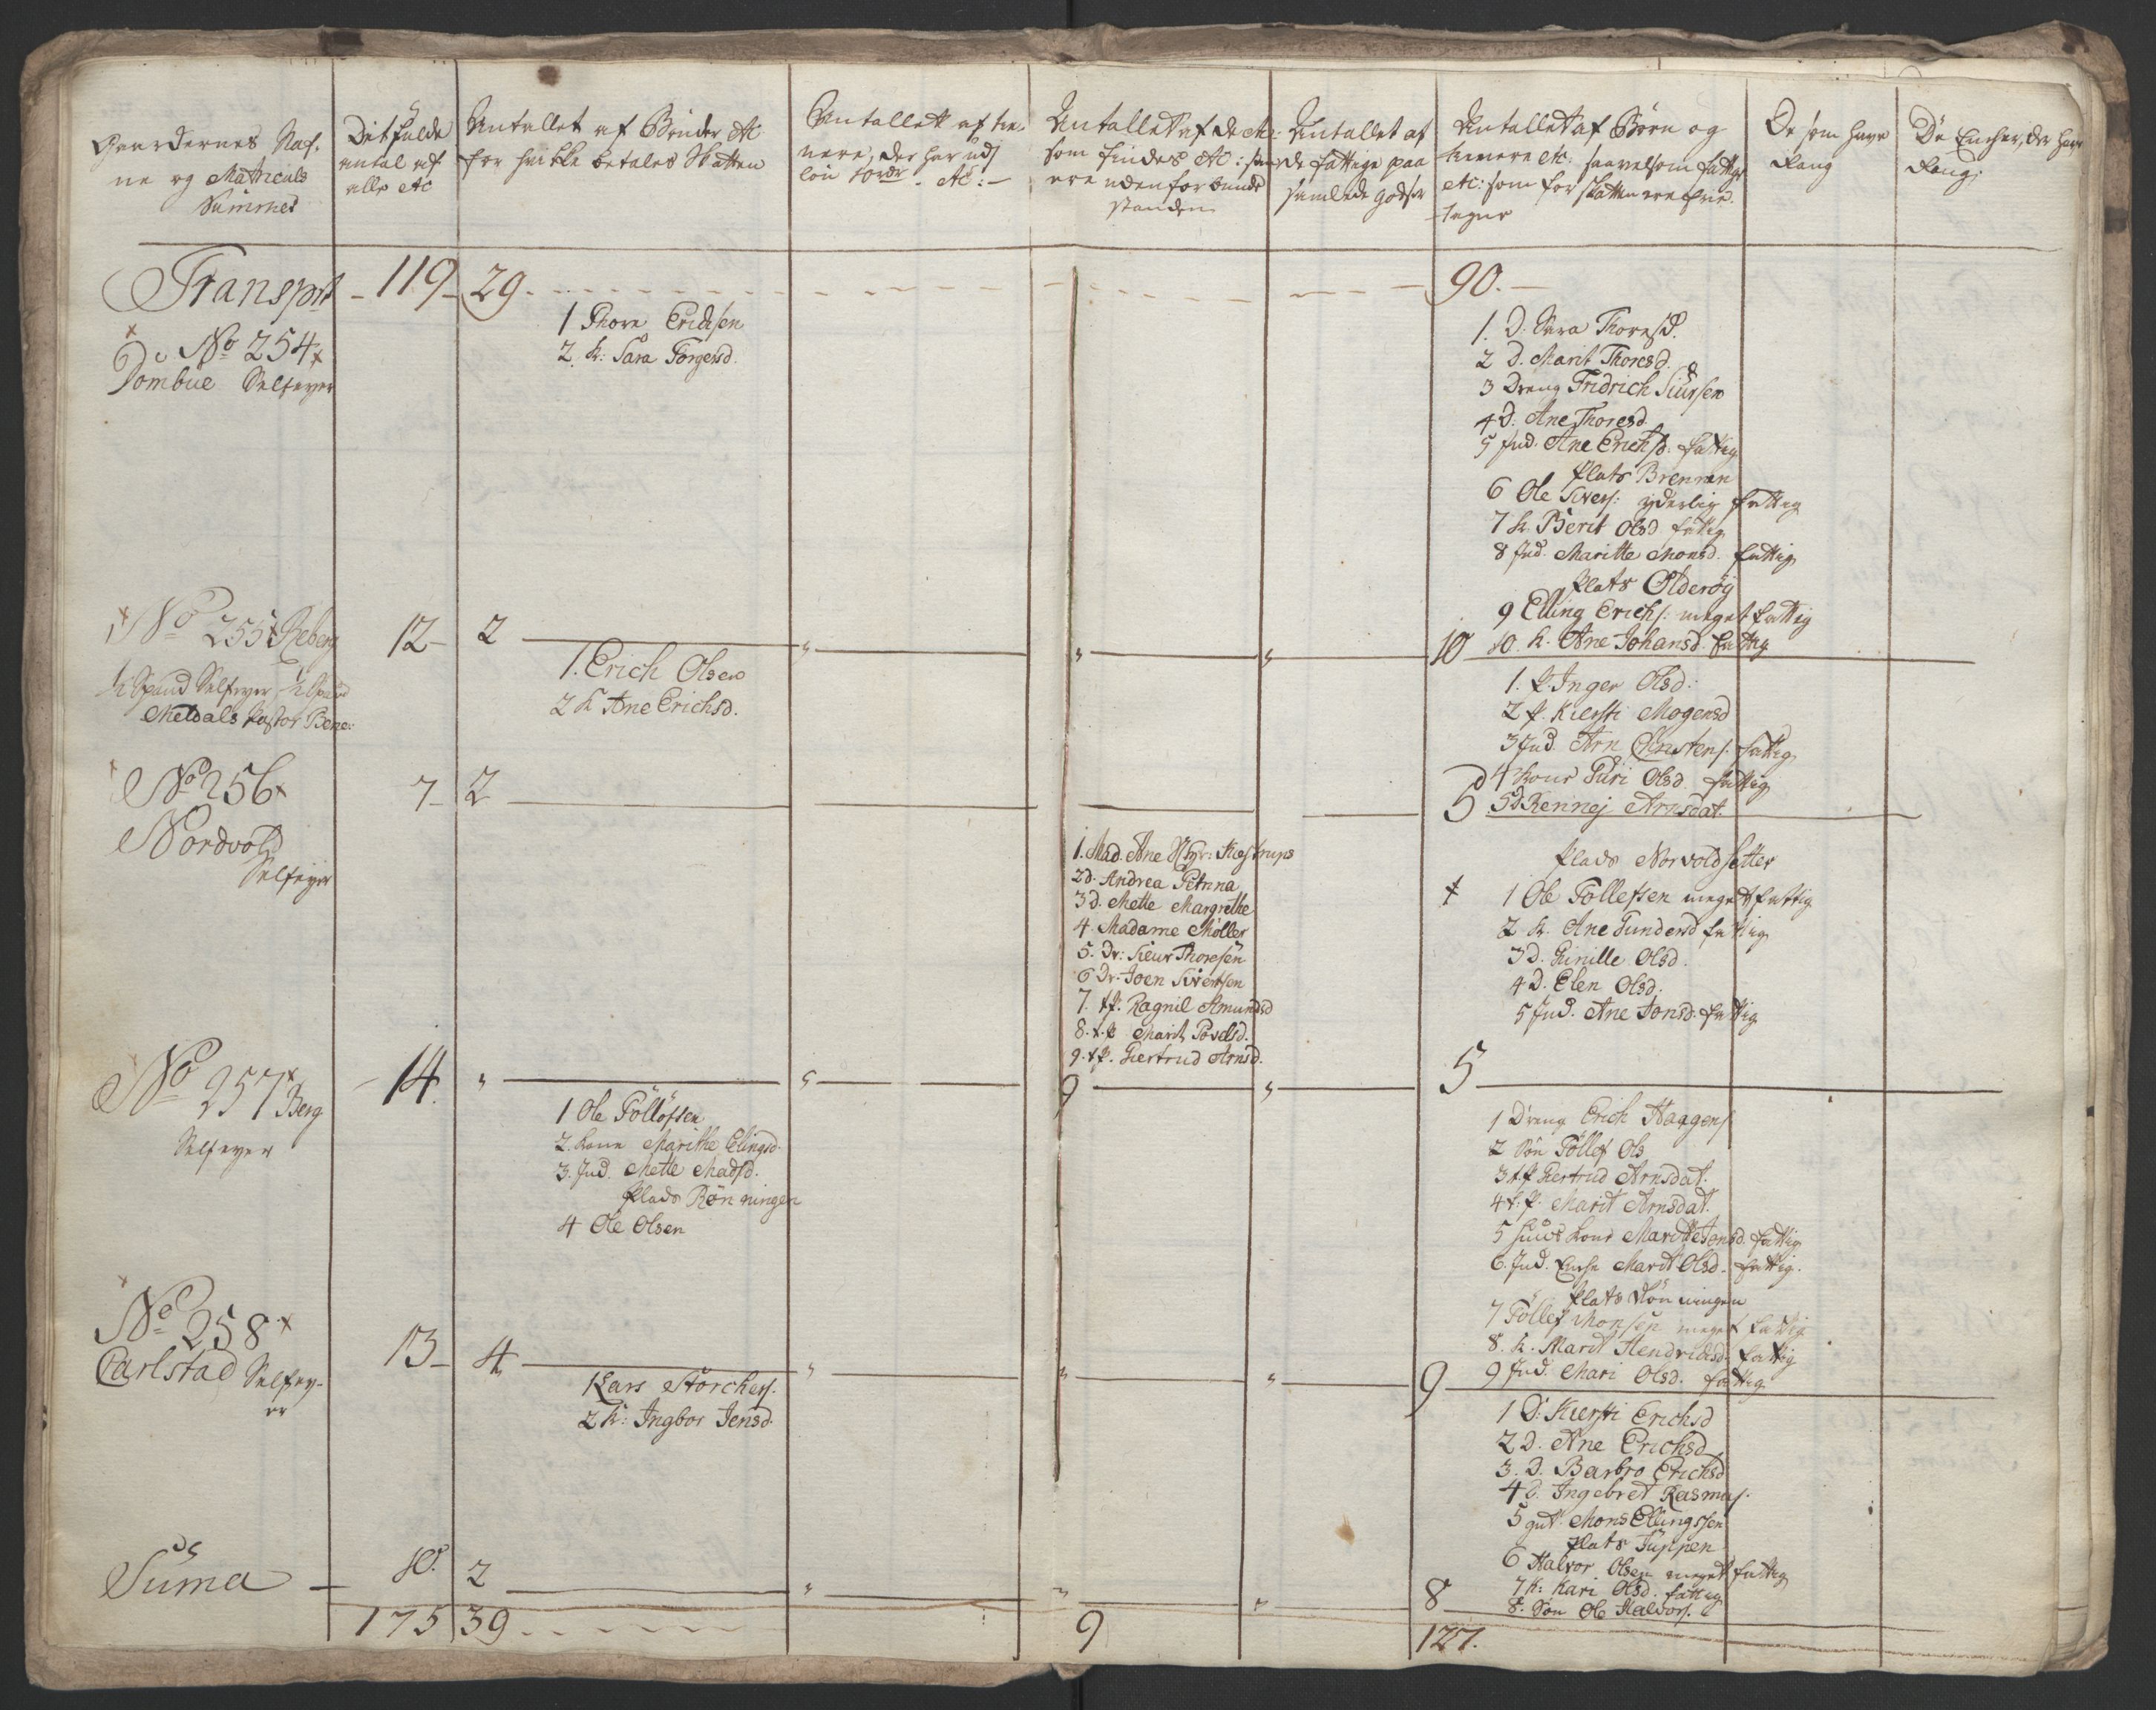 Gaardernes Naf-
ne og Matriculs
Nummer
Det fulde
antal af
alle etc
Antallet af Bønder etc
for hvilke betales Skatten
Antallett af tie-
nere, der har udj
lön 10rdr. etc: —
Antallet af de etc:
som findes etc:
ere uden for bunde
standen
Antallet af
de fattige paa
samlede godser
Antallet af Børn og
etc: saavelsom fattige
etc: som for skatten ere frie.
tagne
De som have
Rang
De Encher, der have
Rang
Transprt — 119 — 29 90. —
No 254
Dombue Selfeyer
1 Thore Erichsen
2. K: Sara Torgersd.
1. D: Sara Thoresd.
2 D. Marit Thoresd.
3 Dreng Fridrich Siursen
4 D: Ane Thoresd.
5 Ind. Ane Erichsd: fattig
Plats Brennen
6 Ole Sivers: yderlig fattig
7 K. Berit Olsd fattig
8 Ind. Maritte Monsd. fattig
Plats Olderøy
9 Elling Erichs: meget fattig
10. K. Ane Johansd. fattig
12 — 2 " " " 10
No 255 Reberg
1/2 Spand Selfeyer 1/2 Spand
Meldals Pastor Bene:
1. Erich Olsen
2 K Ane Erichsd.
1. P. Inger Olsd:
2 P. Kiersti Mogensd
3 Ind. Arn Christens. fattig
4 Kone Guri Olsd fattig
5 D Rennej Arnsdat.
7 — 2 5
No 256
Nordvold
Selfeyer
1. Mad. Ane Kiestrups
2 D. Andrea Petrina
3 D. Mette Margrethe
4. Madame Møller
5. Dr: Sieur Thoresen
6 Dr. Joen Sivertsen
7. t.P. Ragnil Amundsd
8. t.P Marit Povelsd.
9. t.P. Giertrud Arnsd.
Plads Norvoldsetter
1 Ole Tollefsen meget fattig
2 K. Ane Gundersd fattig
3 D. Gunille Olsd.
4 D. Elen Olsd.
5 Ind. Ane Jonsd. fattig
14. " " 9 " 5
No 257 Berg
Selfeyer
1 Ole Tölløfsen
2. Kone Marithe Elingsd.
3. Ind. Mette Madsd.
Plads Rönningen
4 Ole Olsen
1 Dreng Erich Haagens
2 Sön Töllef Ols
3 t.P Giertrud Arnsdat.
4 t.P. Marit Arnsdat.
5 huus kone Maritte Jonsd. fattig
6. Ind. Enche Marit Olsd. fattig.
Plats Rönningen
7 Töllef Monsen meget fattig
8. K. Marit Hendrichsd. fattig
9 Ind. Mari Olsd. fattig
13 — 4 " " " 9
No 258
Carlstad Selfey-
er
1 Lars Storchers.
2 K: Ingbor Jensd.
1 D. Kiersti Erichsd
2 D. Ane Erichsd
3. D. Barbro Erichsd
4 D. Ingebret Rasmus.
5 gut. Mons Ellingssen
Plats Tuppen
6 Halvor Olsen meget fattig
7 K: Kari Olsd. fattig
8. Sön Ole Halvors.
10. 2 " " " 8
Suma — 175 39 9 127.